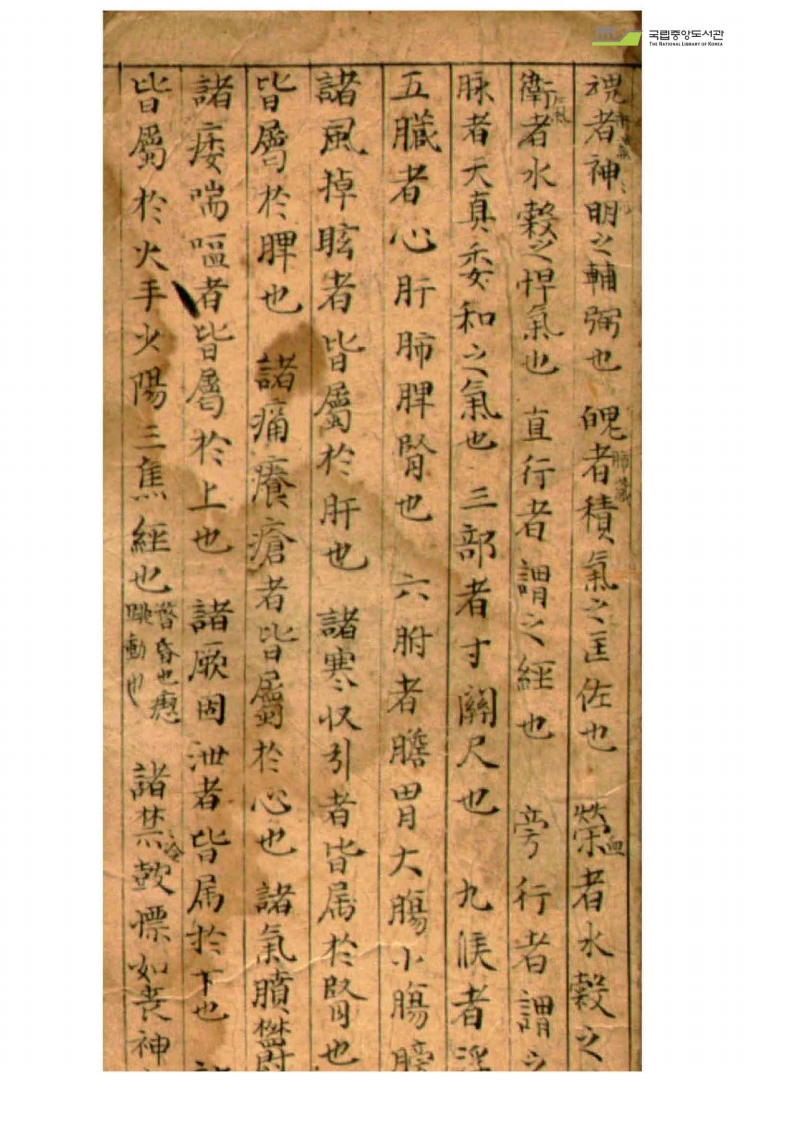 국립중앙도서관
THE NATIONAL LIBRARY OF KOREA
魂者神明之輔弼也 魄者積氣之匡佐也 榮血者水穀之
衛者水穀之悍氣也 直行者謂之經也 旁行者謂之
脉者天真委和之氣也 三部者寸關尺也 九候者浮
五臟者心肝肺脾腎也 六腑者膽胃大腸小腸膀
諸風掉眩者皆屬於肝也 諸寒収引者皆属於腎也
皆屬於脾也 諸痛癢瘡者皆屬於心也 諸氣膹欝
諸痿喘嘔者皆屬於上也 諸厥固泄者皆属於下也
皆屬於火手少陽三焦經也 瞀昏也 跳動也 諸禁皷慄如丧神